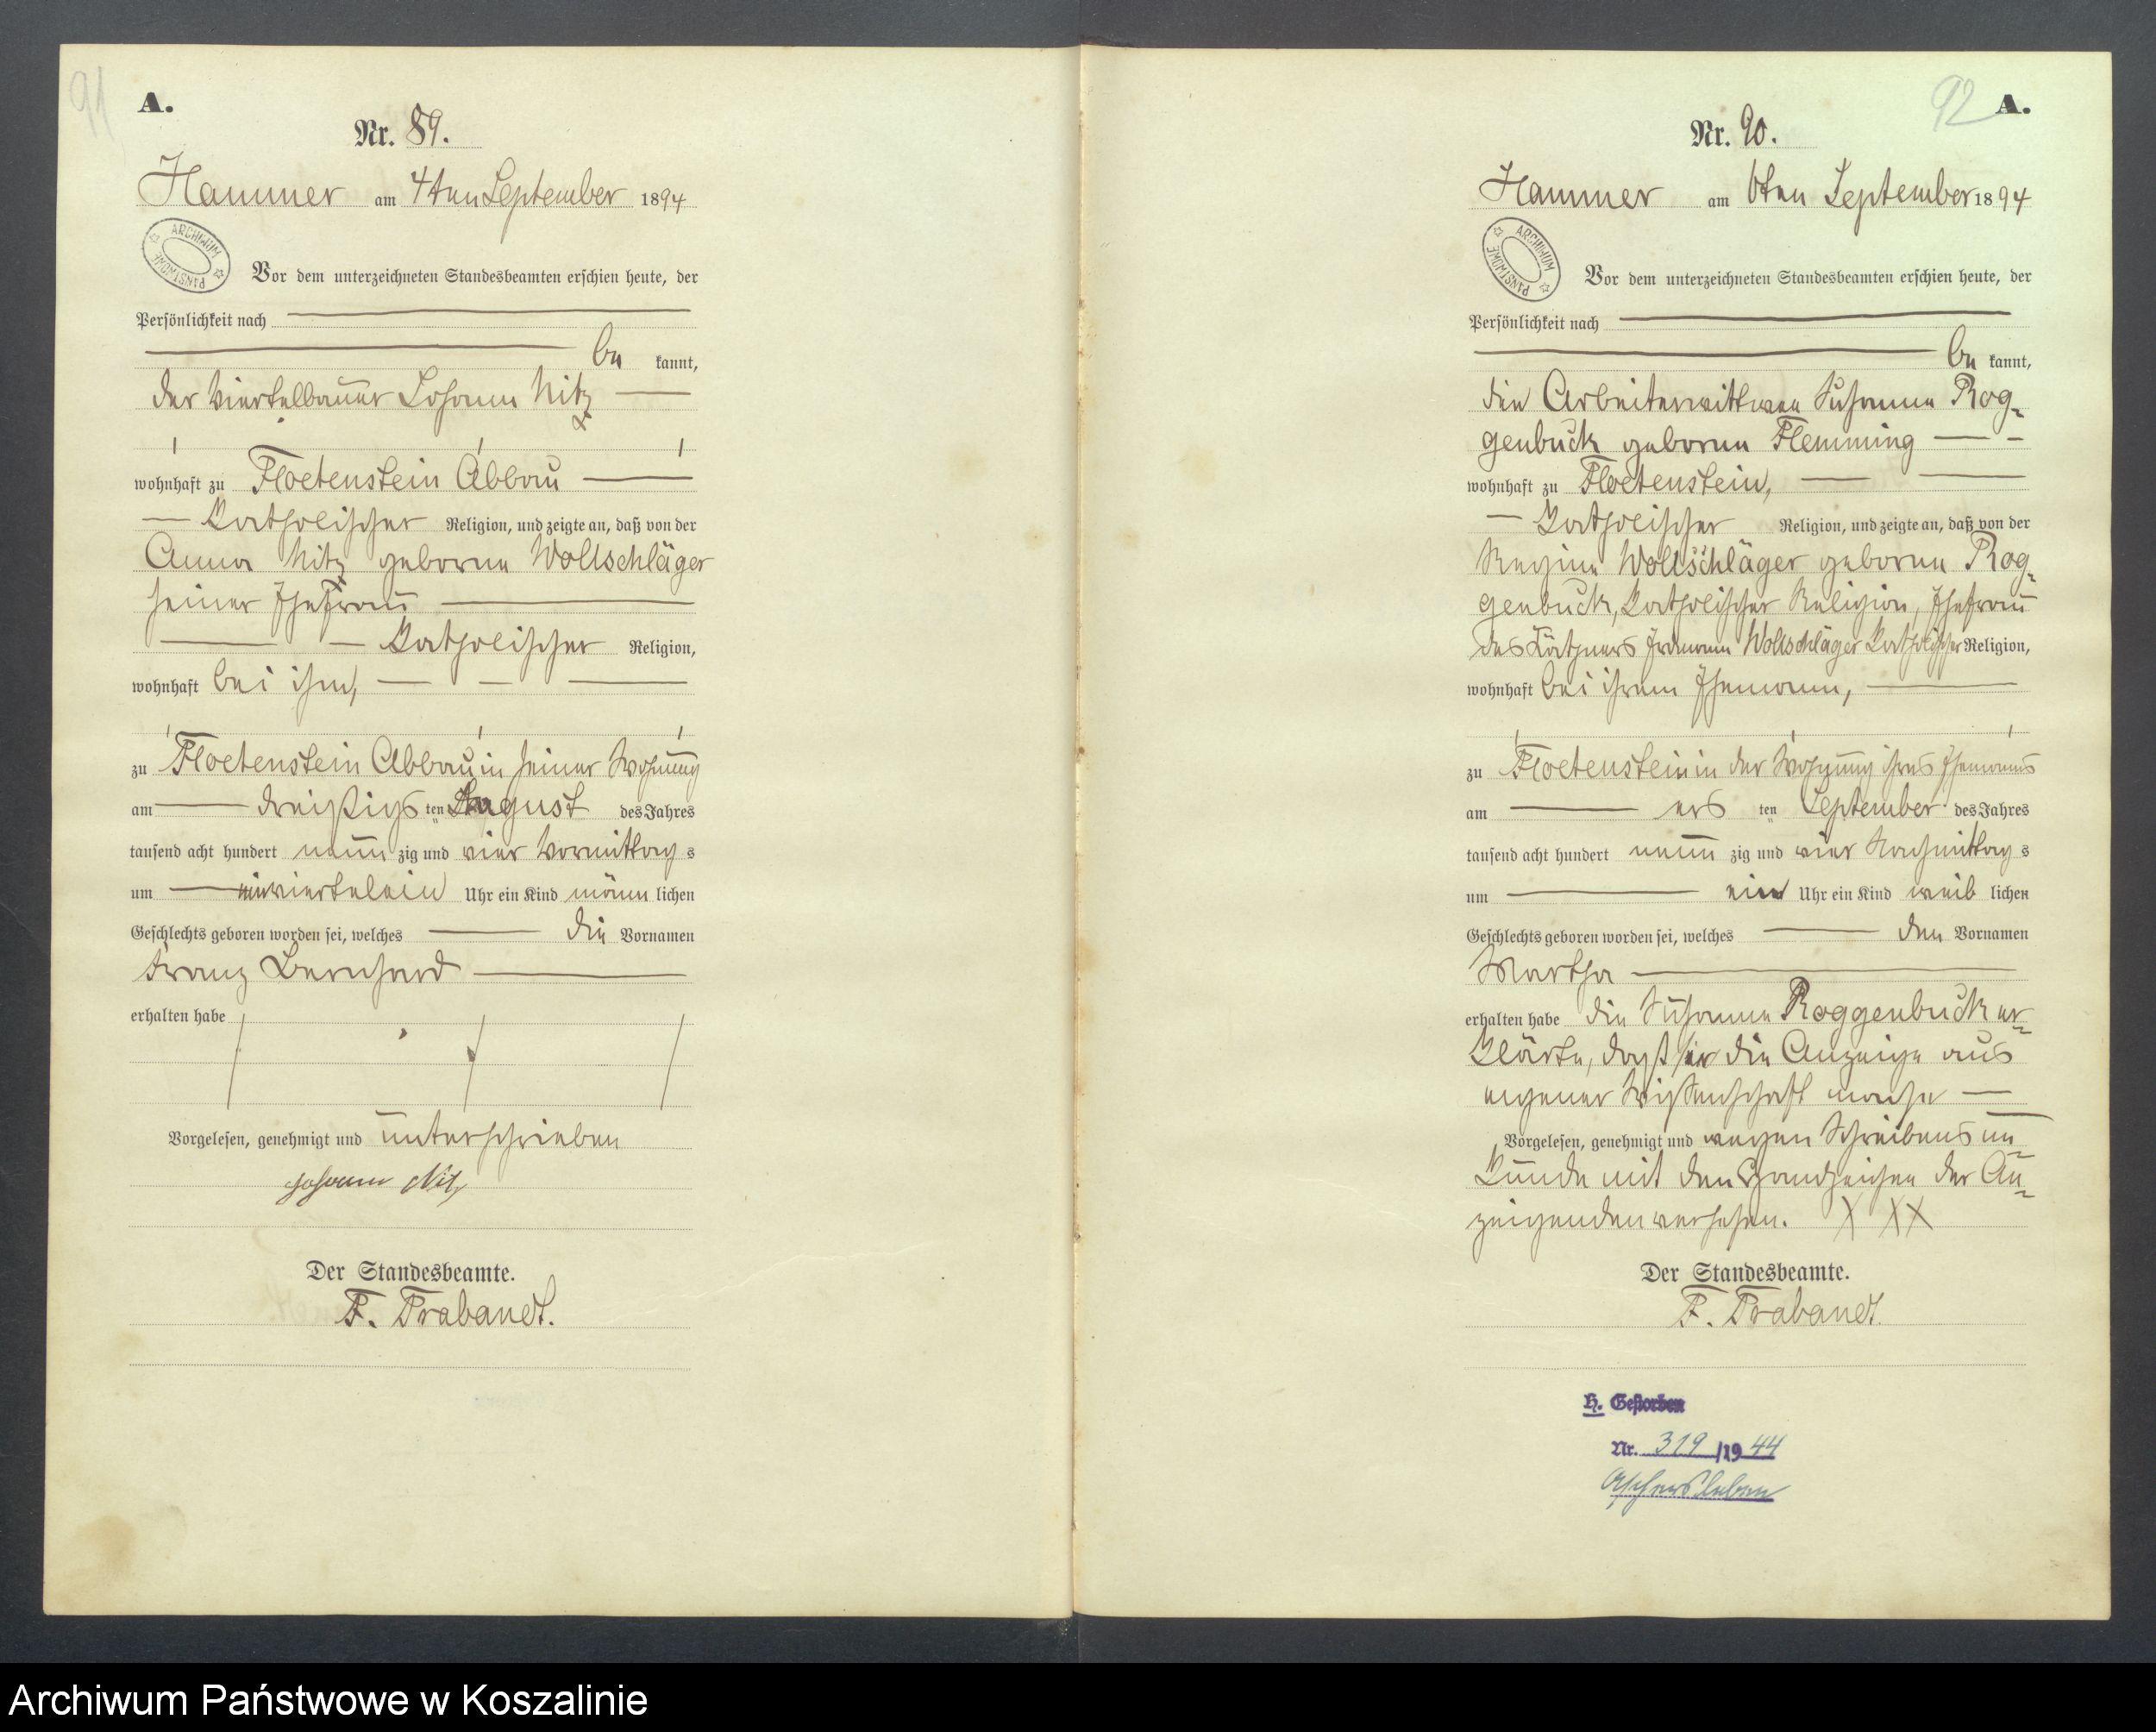 91
A.
Nr. 89.
Hammer am 4ten September 1894
ARCHIWUM PAŃSTWOWE
Vor dem unterzeichneten Standesbeamten erschien heute, der
Persönlichkeit nach
be kannt,
der Viertelbauer Johann Nitz
wohnhaft zu Floetenstein Abbau
katholischer Religion, und zeigte an, daß von der
Anna Nitz geborne Wollschläger
seiner Ehefrau
katholischer Religion,
wohnhaft bei ihm,
zu Floetenstein Abbau in seiner Wohnung
am dreißigs ten August des Jahres
tausend acht hundert neun zig und vier Vormittag s
um einviertelein Uhr ein Kind männ lichen
Geschlechts geboren worden sei, welches die Vornamen
Franz Bernhard
erhalten habe
Vorgelesen, genehmigt und unterschrieben
Johann Nitz
Der Standesbeamte.
F. Trabandt.
92
A.
Nr. 90.
Hammer am 6ten September 1894
ARCHIWUM PAŃSTWOWE
Vor dem unterzeichneten Standesbeamten erschien heute, der
Persönlichkeit nach
be kannt,
die Arbeiterwittwee Susanna Rog-
genbuck geborne Flemming
wohnhaft zu Floetenstein,
katholischer Religion, und zeigte an, daß von der
Regine Wollschläger geborne Rog-
genbuck, katholischer Religion, Ehefrau
des Käthners Erdmann Wollschläger katholischer Religion,
wohnhaft bei ihrem Ehemann,
zu Floetenstein in der Wohnung ihres Ehemanns
am ers ten September des Jahres
tausend acht hundert neun zig und vier Nachmittag s
um ein Uhr ein Kind weib lichen
Geschlechts geboren worden sei, welches den Vornamen
Martha
erhalten habe die Susanna Roggenbuck er-
klärte, daß sie die Anzeige aus
eigener Wißenschaft mache
Vorgelesen, genehmigt und wegen Schreibens un-
kunde mit den Handzeichen der An-
zeigenden versehen. X XX
Der Standesbeamte.
F. Trabandt.
H. Gestorben
Nr. 319 /1944
Aschersleben
Archiwum Państwowe w Koszalinie